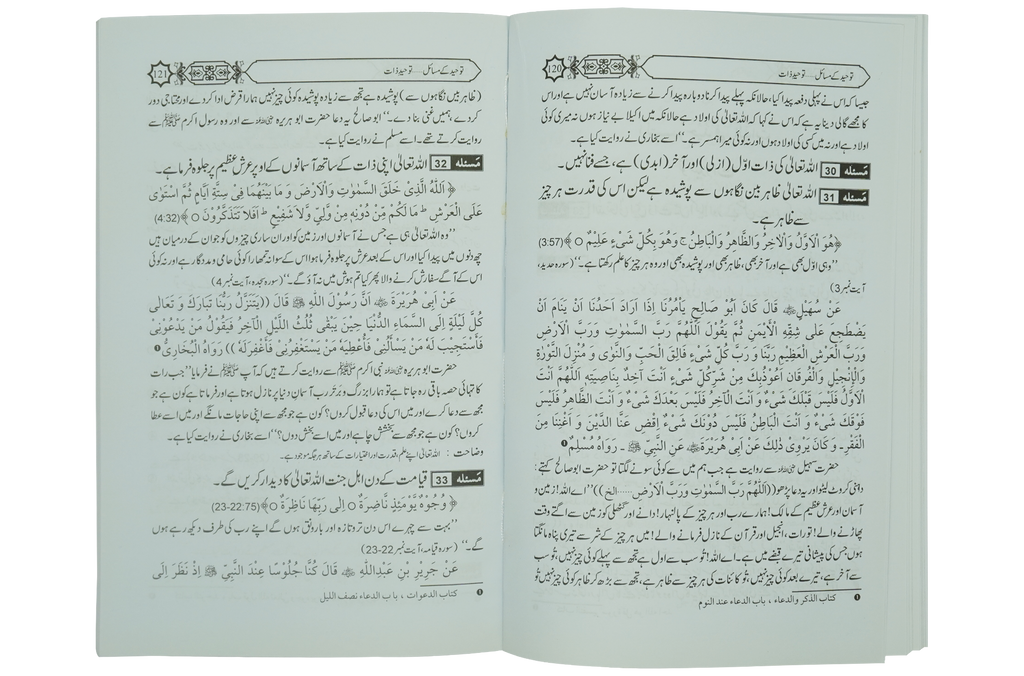 120 توحید کے مسائل.....توحید ذات
جیسا کہ اس نے پہلی دفعہ پیدا کیا، حالانکہ پہلے پیدا کرنا دوبارہ پیدا کرنے سے زیادہ آسان نہیں ہے اور اس
کا مجھے گالی دینا یہ ہے کہ اس نے کہا کہ اللہ تعالیٰ کی اولاد ہے حالانکہ میں اکیلا بے نیاز ہوں نہ میری کوئی
اولاد ہے اور نہ میں کسی کی اولاد ہوں اور نہ کوئی میرا ہمسر ہے۔‘‘ اسے بخاری نے روایت کیا ہے۔
مسئلہ 30 اللہ تعالیٰ کی ذات اوّل (ازلی) اور آخر (ابدی) ہے، جسے فنا نہیں۔
مسئلہ 31 اللہ تعالیٰ ظاہر بین نگاہوں سے پوشیدہ ہے لیکن اس کی قدرت ہر چیز
سے ظاہر ہے۔
﴿هُوَ الْاَوَّلُ وَالْاٰخِرُ وَالظَّاهِرُ وَالْبَاطِنُ ج وَهُوَ بِكُلِّ شَیْءٍ عَلِیْمٌ ○﴾(3:57)
’’وہی اوّل بھی ہے اور آخر بھی، ظاہر بھی اور پوشیدہ بھی اور وہ ہر چیز کا علم رکھتا ہے۔‘‘ (سورہ حدید،
آیت نمبر 3)
عَنْ سُهَيْلٍ ﷺ قَالَ كَانَ اَبُوْ صَالِحٍ يَأْمُرُنَا اِذَا اَرَادَ اَحَدُنَا اَنْ يَنَامَ اَنْ
يَضْطَجِعَ عَلٰى شِقِّهِ الْاَيْمَنِ ثُمَّ يَقُوْلُ اَللّٰهُمَّ رَبَّ السَّمٰوٰتِ وَرَبَّ الْاَرْضِ
وَرَبَّ الْعَرْشِ الْعَظِيْمِ رَبَّنَا وَ رَبَّ كُلِّ شَیْءٍ فَالِقَ الْحَبِّ وَالنَّوٰى وَ مُنْزِلَ التَّوْرٰةِ
وَالْاِنْجِيْلِ وَالْفُرْقَانِ اَعُوْذُبِكَ مِنْ شَرِّكُلِّ شَیْءٍ اَنْتَ آخِذٌ بِنَاصِيَتِهٖ اَللّٰهُمَّ اَنْتَ
الْاَوَّلُ فَلَيْسَ قَبْلَكَ شَیْءٌ وَ اَنْتَ الْآخِرُ فَلَيْسَ بَعْدَكَ شَیْءٌ وَ اَنْتَ الظَّاهِرُ فَلَيْسَ
فَوْقَكَ شَیْءٌ وَ اَنْتَ الْبَاطِنُ فَلَيْسَ دُوْنَكَ شَیْءٌ اِقْضِ عَنَّا الدَّيْنَ وَ اَغْنِنَا مِنَ
الْفَقْرِ۔ وَ كَانَ يَرْوِیْ ذٰلِكَ عَنْ اَبِیْ هُرَيْرَةَ عَنِ النَّبِیِّ ﷺ ۔ رَوَاهُ مُسْلِمٌ ❶
حضرت سہیل سے روایت ہے جب ہم میں سے کوئی سونے لگتا تو حضرت ابوصالح کہتے:
داہنی کروٹ لیٹو اور یہ دعا پڑھو ((اَللّٰهُمَّ رَبَّ السَّمٰوٰتِ وَرَبَّ الْاَرْضِ......الخ)) ’’اے اللہ! زمین و
آسمان اور عرش عظیم کے مالک! ہمارے رب اور ہر چیز کے پالنہار! دانے اور گٹھلی کو زمین سے اگتے وقت
پھاڑنے والے! تورات، انجیل اور قرآن کے نازل فرمانے والے! میں ہر چیز کے شر سے تیری پناہ مانگتا
ہوں جس کی پیشانی تیرے قبضے میں ہے۔ اے اللہ! تو سب سے اول ہے تجھ سے پہلے کوئی چیز نہیں، تو سب
سے آخر ہے، تیرے بعد کوئی چیز نہیں، تو کائنات کی ہر چیز سے ظاہر ہے، تجھ سے بڑھ کر ظاہر کوئی چیز نہیں تو
❶ كتاب الذكر والدعاء ، باب الدعاء عند النوم
121 توحید کے مسائل.....توحید ذات
(ظاہر بین نگاہوں سے) پوشیدہ ہے تجھ سے زیادہ پوشیدہ کوئی چیز نہیں ہمارا قرض ادا کر دے اور محتاجی دور
کر دے، ہمیں غنی بنا دے۔‘‘ ابوصالح یہ دعا حضرت ابو ہریرہ سے اور وہ رسول اکرم ﷺ سے
روایت کرتے تھے۔ اسے مسلم نے روایت کیا ہے۔
مسئلہ 32 اللہ تعالیٰ اپنی ذات کے ساتھ آسمانوں کے اوپر عرش عظیم پر جلوہ فرما ہے۔
﴿ اَللّٰهُ الَّذِیْ خَلَقَ السَّمٰوٰتِ وَالْاَرْضَ وَ مَا بَيْنَهُمَا فِیْ سِتَّةِ اَيَّامٍ ثُمَّ اسْتَوٰى
عَلَى الْعَرْشِ ط مَا لَكُمْ مِّنْ دُوْنِهٖ مِنْ وَّلِیٍّ وَّلَا شَفِيْعٍ ط اَفَلَا تَتَذَكَّرُوْنَ ○ ﴾(4:32)
’’وہ اللہ تعالیٰ ہی ہے جس نے آسمانوں اور زمین کو اور ان ساری چیزوں کو جو ان کے درمیان ہیں
چھ دنوں میں پیدا کیا اور اس کے بعد عرش پر جلوہ فرما ہوا اس کے سوا نہ تمہارا کوئی حامی و مددگار ہے اور نہ کوئی
اس کے آگے سفارش کرنے والا پھر کیا تم ہوش میں نہ آؤ گے۔‘‘ (سورہ سجدہ، آیت نمبر 4)
عَنْ اَبِیْ هُرَيْرَةَ اَنَّ رَسُوْلَ اللّٰهِ ﷺ قَالَ ((يَتَنَزَّلُ رَبُّنَا تَبَارَكَ وَ تَعَالٰى
كُلَّ لَيْلَةٍ اِلَى السَّمَاءِ الدُّنْيَا حِيْنَ يَبْقٰى ثُلُثُ اللَّيْلِ الْآخِرُ فَيَقُوْلُ مَنْ يَدْعُوْنِیْ
فَاَسْتَجِيْبَ لَهٗ مَنْ يَسْأَلُنِیْ فَاُعْطِيَهٗ مَنْ يَسْتَغْفِرُنِیْ فَاَغْفِرَلَهٗ )) رَوَاهُ الْبُخَارِیُّ ❶
حضرت ابو ہریرہ نبی اکرم ﷺ سے روایت کرتے ہیں کہ آپ ﷺ نے فرمایا ’’جب رات
کا تہائی حصہ باقی رہ جاتا ہے تو ہمارا بزرگ و برتر رب آسمان دنیا پر نازل ہوتا ہے اور فرماتا ہے کون ہے جو
مجھ سے دعا کرے اور میں اس کی دعا قبول کروں؟ کون ہے جو مجھ سے اپنی حاجات مانگے اور میں اسے عطا
کروں؟ کون ہے جو مجھ سے بخشش چاہے اور میں اسے بخش دوں؟‘‘ اسے بخاری نے روایت کیا ہے۔
وضاحت : اللہ تعالیٰ اپنے علم، قدرت اور اختیارات کے ساتھ ہر جگہ موجود ہے۔
مسئلہ 33 قیامت کے دن اہل جنت اللہ تعالیٰ کا دیدار کریں گے۔
﴿ وُجُوْهٌ يَّوْمَئِذٍ نَّاضِرَةٌ ○ اِلٰى رَبِّهَا نَاظِرَةٌ ○﴾(23-22:75)
’’بہت سے چہرے اس دن تروتازہ اور بارونق ہوں گے اپنے رب کی طرف دیکھ رہے ہوں
گے۔‘‘ (سورہ قیامہ، آیت نمبر 22-23)
عَنْ جَرِيْرِ بْنِ عَبْدِاللّٰهِ قَالَ كُنَّا جُلُوْسًا عِنْدَ النَّبِیِّ ﷺ اِذْ نَظَرَ اِلَى
❶ كتاب الدعوات ، باب الدعاء نصف الليل